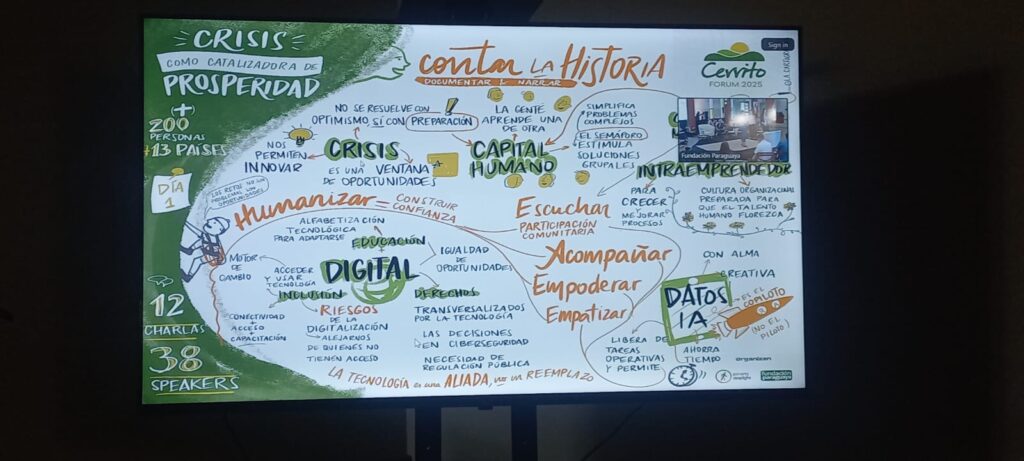 CRISIS
COMO CATALIZADORA DE
PROSPERIDAD
+
200
PERSONAS
+13 PAÍSES
DÍA
1
LOS RETOS NO SON
PROBLEMAS SON
OPORTUNIDADES
12
CHARLAS
38
SPEAKERS
contar LA HISTORIA
DOCUMENTAR Y NARRAR
Cerrito
FORUM 2025
Sign in
Fundación Paraguaya
NO SE RESUELVE CON
OPTIMISMO, SÍ CON PREPARACIÓN
NOS
PERMITEN
INNOVAR
CRISIS
ES UNA VENTANA
DE OPORTUNIDADES
LA GENTE
APRENDE UNA
DE OTRA
CAPITAL
HUMANO
SIMPLIFICA
PROBLEMAS
COMPLEJOS
EL SEMÁFORO
ESTIMULA
SOLUCIONES
GRUPALES
INTRAEMPRENDEDOR
PARA
CRECER
Y
MEJORAR
PROCESOS
CULTURA ORGANIZACIONAL
PREPARADA PARA
QUE EL TALENTO
HUMANO FLOREZCA
Humanizar = CONSTRUIR
CONFIANZA
Escuchar
PARTICIPACIÓN
COMUNITARIA
Acompañar
Empoderar
Empatizar
ALFABETIZACIÓN
TECNOLÓGICA
PARA ADAPTARSE
EDUCACIÓN
+
DIGITAL
IGUALDAD
DE
OPORTUNIDADES
MOTOR
DE
CAMBIO
ACCEDER
Y USAR
TECNOLOGÍA
INCLUSIÓN
DERECHOS
CONECTIVIDAD
+
ACCESO
+
CAPACITACIÓN
RIESGOS
DE LA
DIGITALIZACIÓN
ALEJARNOS
DE QUIENES NO
TIENEN ACCESO
TRANSVERSALIZADOS
POR LA TECNOLOGÍA
LAS DECISIONES
EN CIBERSEGURIDAD
NECESIDAD DE
REGULACIÓN PÚBLICA
LA TECNOLOGÍA es una ALIADA, no un REEMPLAZO
CON ALMA
CREATIVA
DATOS
IA
ES EL
COPILOTO
(NO EL
PILOTO)
LIBERA DE
TAREAS
OPERATIVAS
Y PERMITE
AHORRA
TIEMPO
organizan
fundación
paraguaya